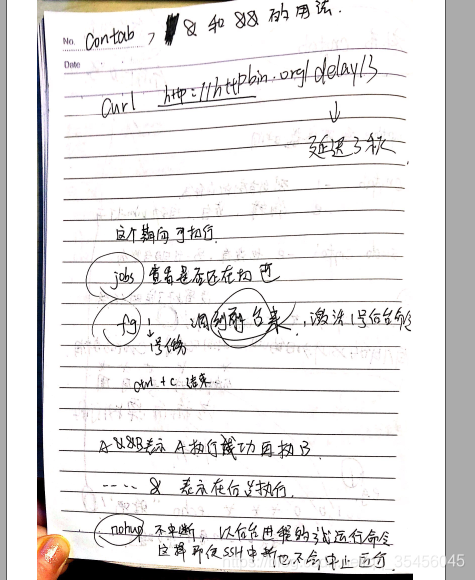 No. Contab, & 和 && 的用法.
Date
Curl http://httpbin.org/delay/3
↓
延迟3秒.
这个期间可执行.
jobs 查看是否还在
fg 1 调到前台来,激活1号后台命令
↓
1号任务
ctrl + c 结束.
A &&B表示 A执行成功再执B.
---- & 表示在后台执行.
nohup 不中断, 以后台用程的 运行命令
这样即使SSH中断也不会中止运行.
35456045